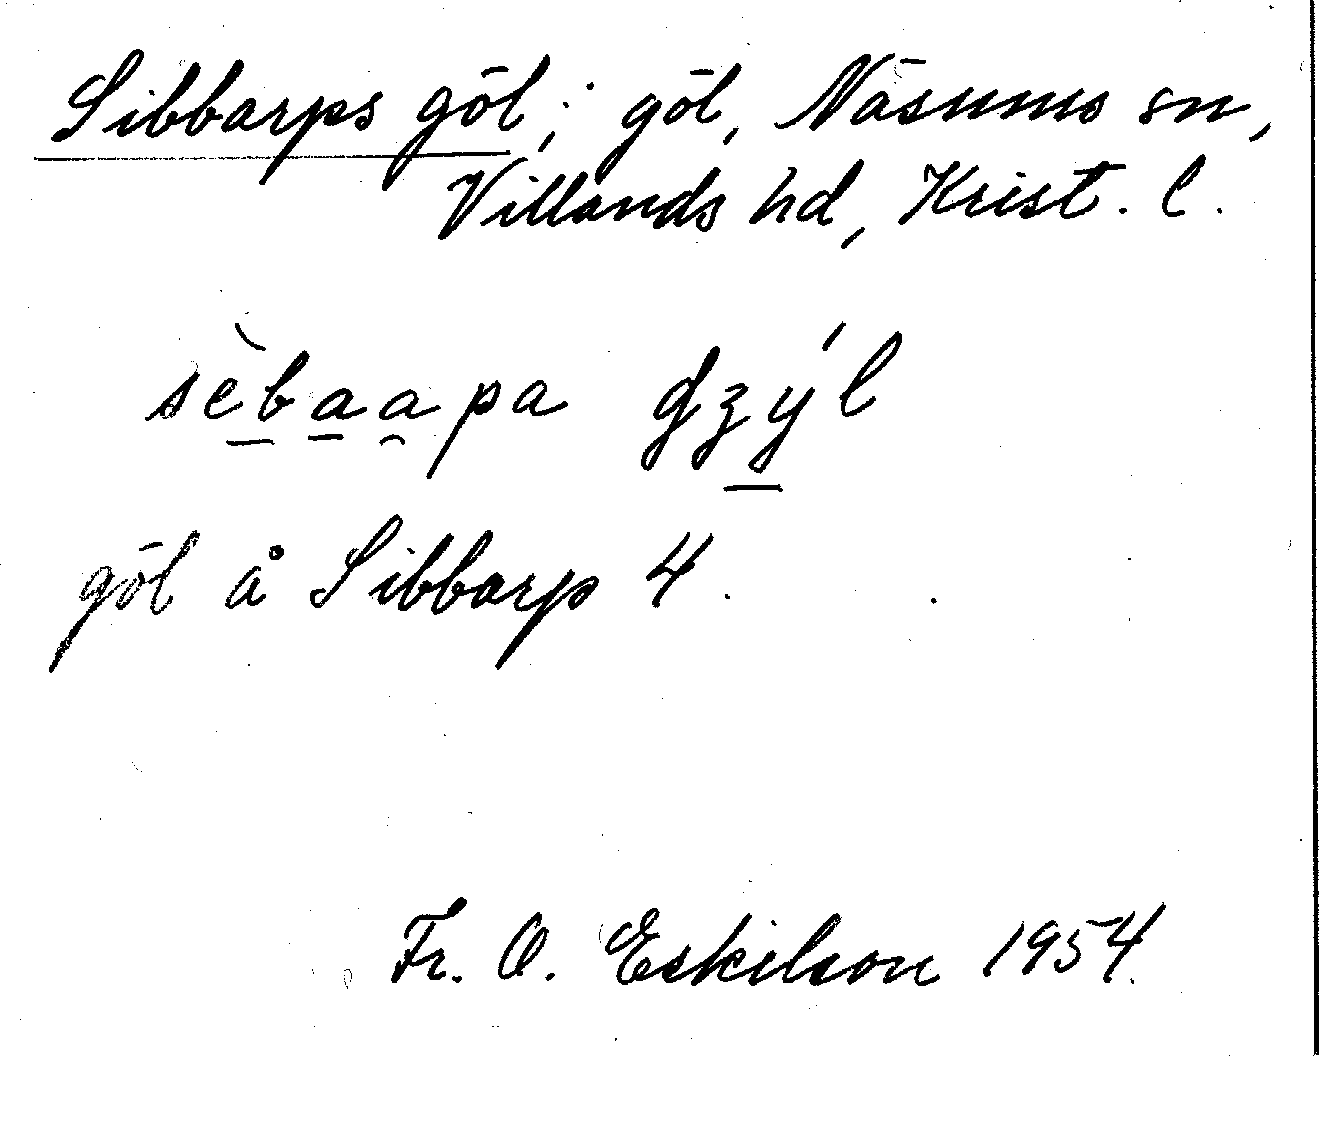 Sibbarps göl; göl, Näsums sn,
Villands hd, Krist. l.
sèbaapa gzýl
göl å Sibbarp 4.
Fr. O. Eskilson 1954.